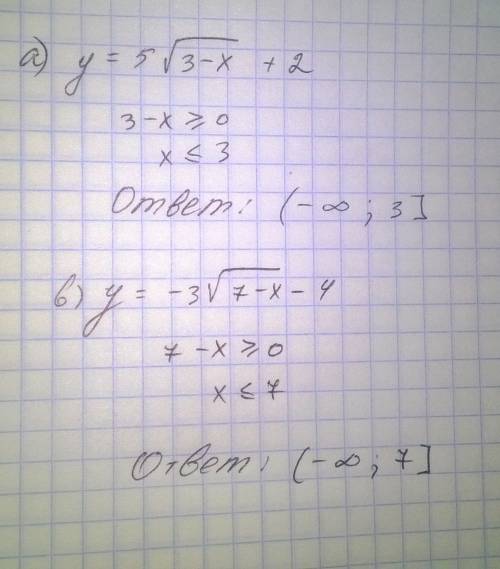 а) y = 5√(3-x) + 2
3-x ⩾ 0
x ≤ 3
Ответ: (-∞; 3]
в) y = -3√(7-x) - 4
7-x ⩾ 0
x ≤ 7
Ответ: (-∞; 7]